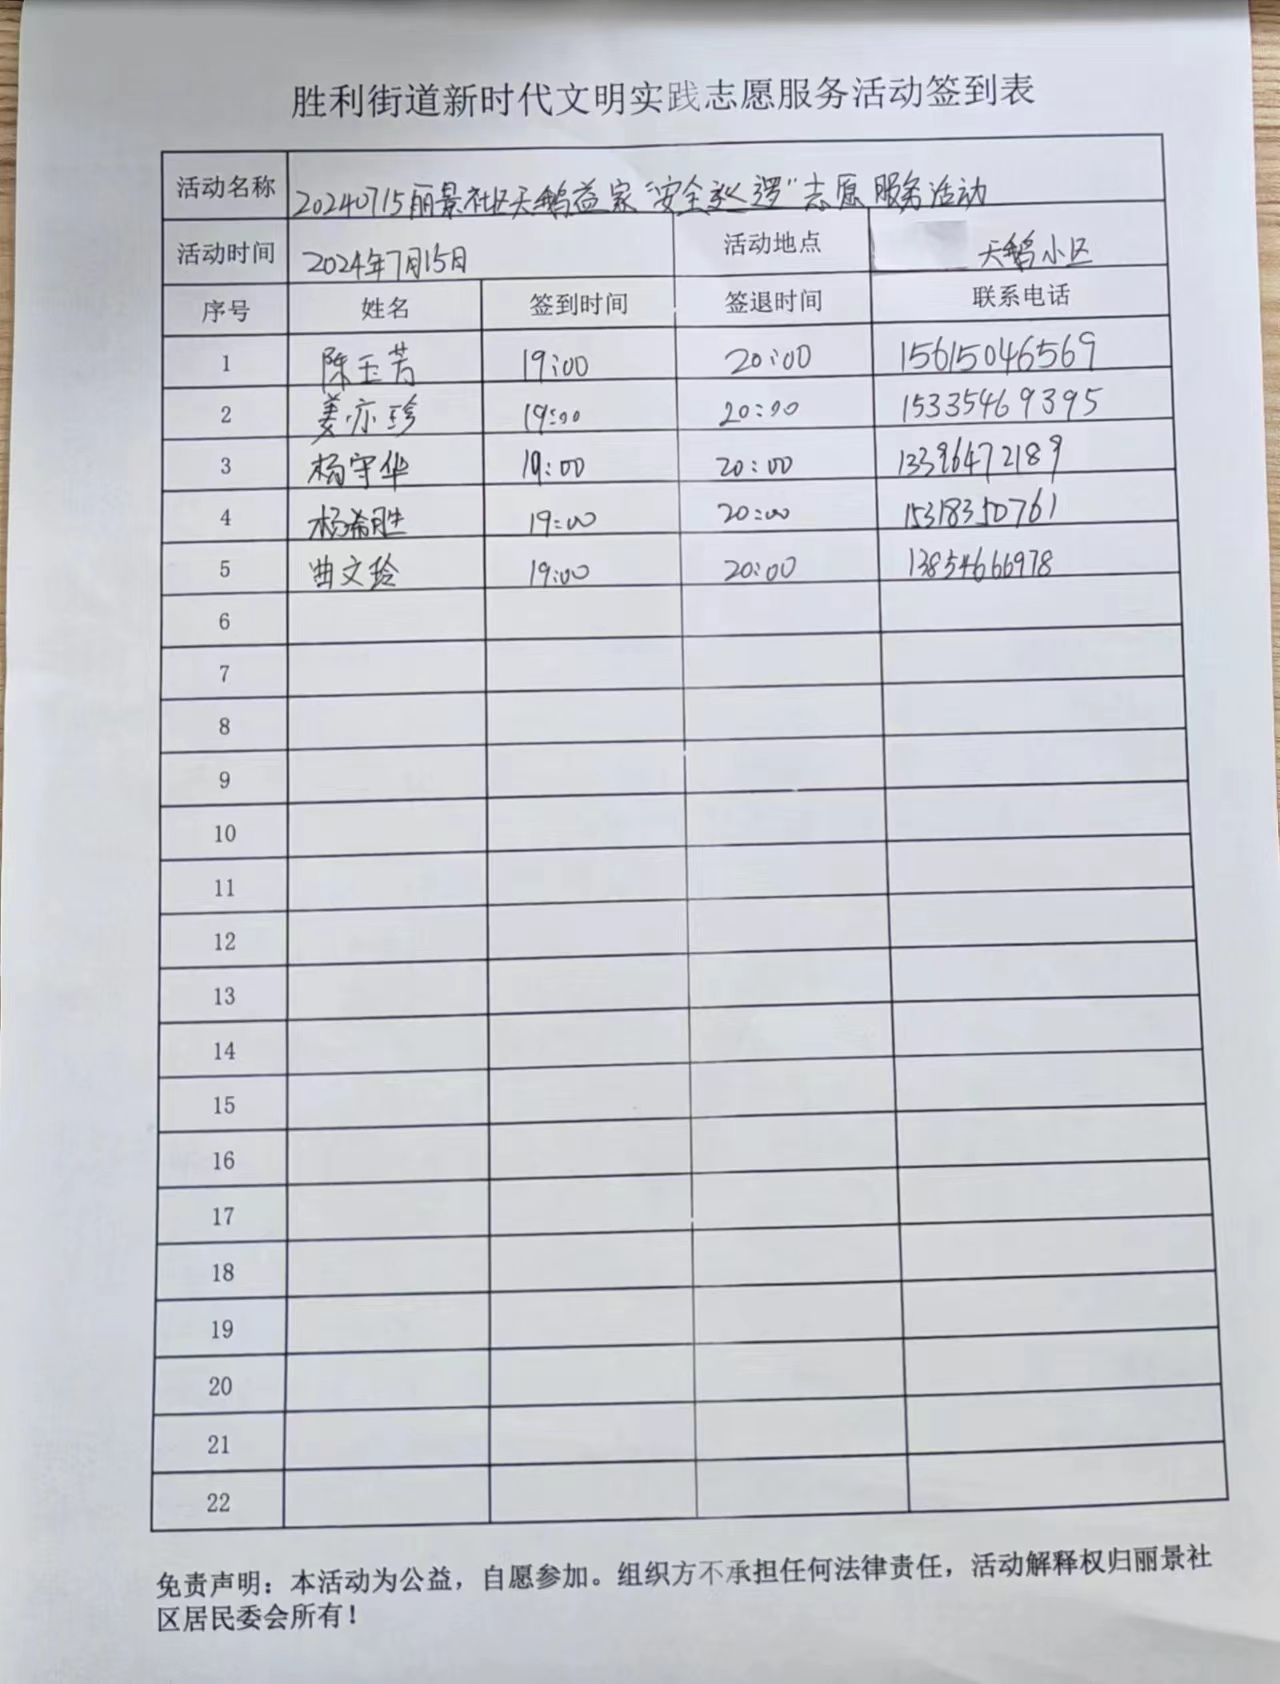 胜利街道新时代文明实践志愿服务活动签到表
活动名称 20240715丽景社区天鹅益家“安全巡逻”志愿服务活动
活动时间 2024年7月15日 活动地点 天鹅小区
序号 姓名 签到时间 签退时间 联系电话
1 陈玉芳 19:00 20:00 15615046569
2 姜亦珍 19:00 20:00 15335469395
3 杨守华 19:00 20:00 13396472189
4 杨希胜 19:00 20:00 15318350761
5 曲文玲 19:00 20:00 13854666978
6
7
8
9
10
11
12
13
14
15
16
17
18
19
20
21
22
免责声明：本活动为公益，自愿参加。组织方不承担任何法律责任，活动解释权归丽景社
区居民委会所有！